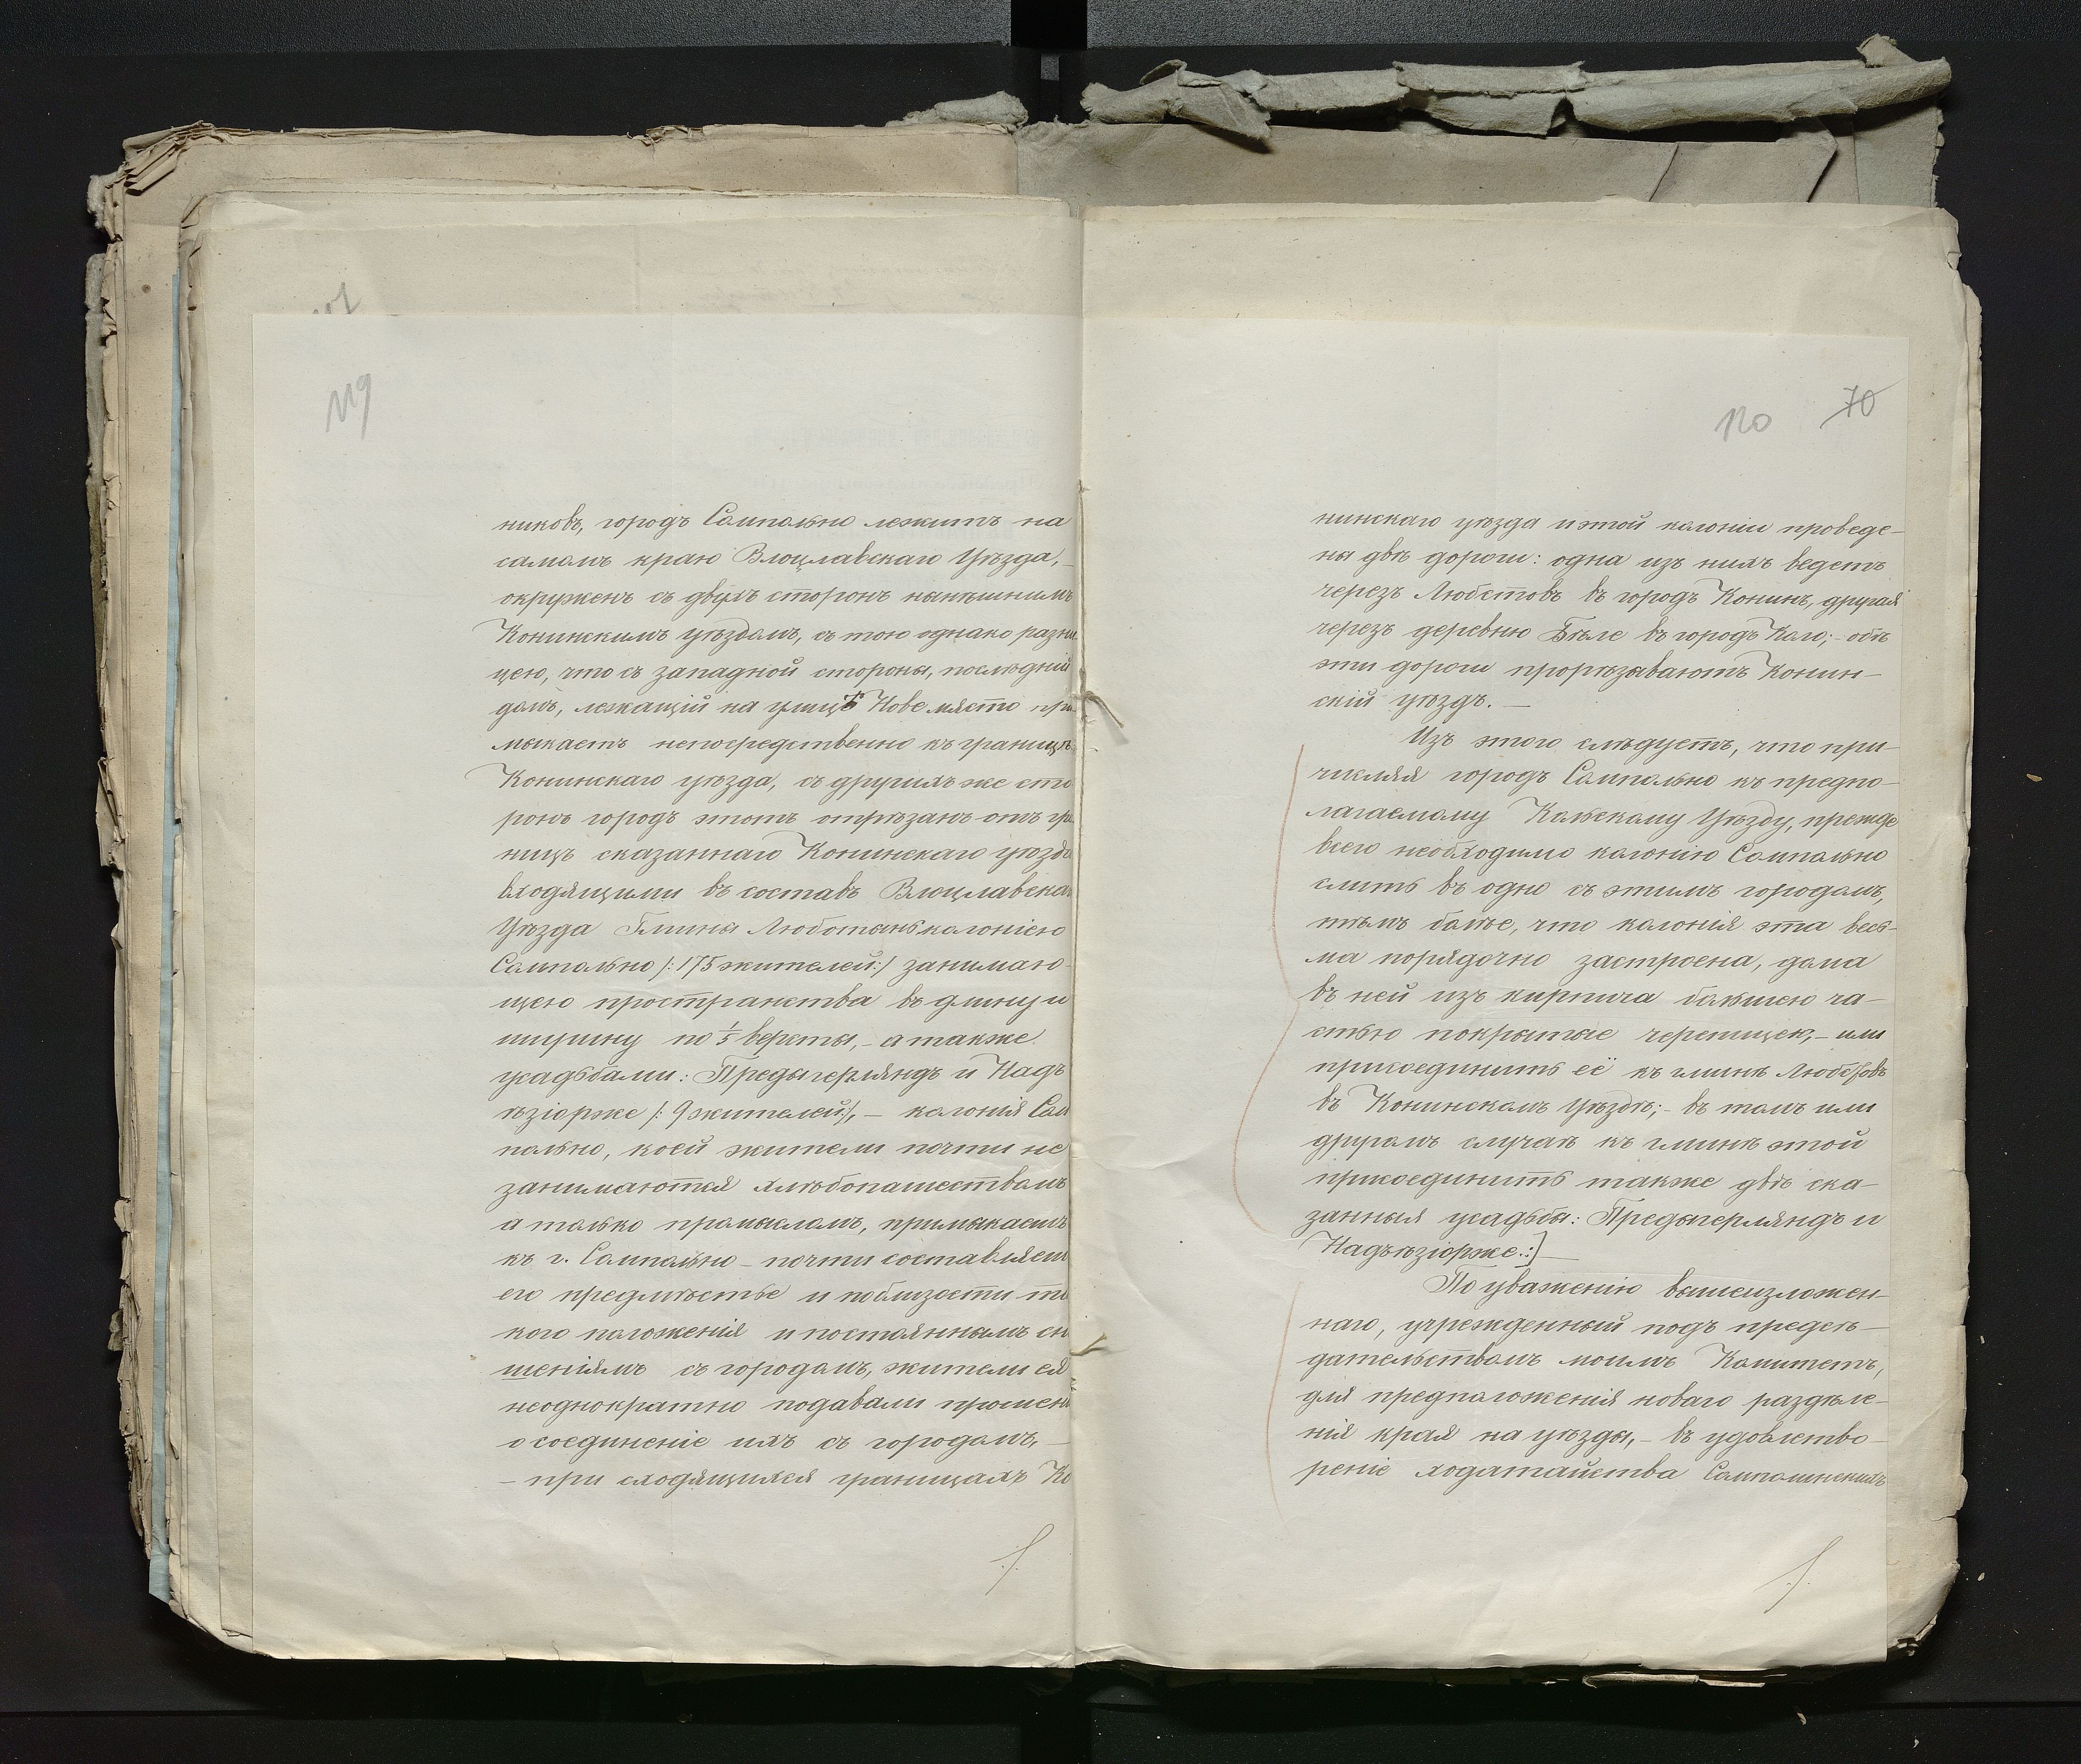 119
никовъ, городъ Сомпольно лежитъ на
самомъ краю Влоцлавскаго Уѣзда, —
окруженъ съ двухъ сторонъ нынѣшнимъ
Конинскимъ уѣздомъ, съ тою однако разни
цею, что съ западной стороны, послѣдній
домъ, лежащій на улицѣ Нове място при
мыкаетъ непосредственно къ границѣ
Конинскаго уѣзда, съ другихъ же сто
ронъ городъ этотъ отрѣзанъ отъ гра
ницъ сказаннаго Конинскаго уѣзда
входящими въ составъ Влоцлавскаго
Уѣзда Гмины Люботынь колоніею
Сомпольно /:175 жителей:/ занимаю-
щею пространства въ длину и
ширину по 1/5 версты, — а также
усадьбами: Предыгерляндъ и Надъ
ѣзіорже /: 9 жителей:/, — колонія Сом
польно, коей жители почти не
занимаются хлѣбопашествомъ
а только промысломъ, примыкаетъ
къ г. Сомпольно — почти составляетъ
его предмѣстье и по близости та
кого положенія и постояннымъ сно
шеніямъ съ городомъ, жители ея
неоднократно подавали прошенія
о соединеніе ихъ съ городомъ, —
— при сходящихся границахъ Ко
120 70
нинскаго уѣзда и этой колоніи проведе-
ны двѣ дороги: одна изъ нихъ ведетъ
черезъ Любстовъ въ городъ Конинъ, другая
черезъ деревню Бѣле въ городъ Коло; — обѣ
эти дороги прорѣзываютъ Конин-
скій уѣздъ. —
Изъ этого слѣдуетъ, что при-
числяя городъ Сомпольно къ предпо-
лагаемому Кольскому Уѣзду, прежде
всего необходимо колонію Сомпольно
слить въ одно съ этимъ городомъ,
тѣмъ болѣе, что колонія эта весь-
ма порядочно застроена, дома
въ ней изъ кирпича большею ча-
стью покрытые черепицек, — или
присоединить её къ гминѣ Любстовъ
въ Конинскомъ Уѣздѣ; — въ томъ или
другомъ случаѣ къ гминѣ этой
присоединить также двѣ ска-
занныя усадьбы: Предыгерляндъ и
Надъѣзіорже.:] —
По уваженію вышеизложен-
наго, учрежденный подъ предсѣ-
дательствомъ моимъ Комитетъ,
для предположенія новаго раздѣле-
нія края на уѣзды, — въ удовлетво-
реніе ходатайства Сомполинскихъ